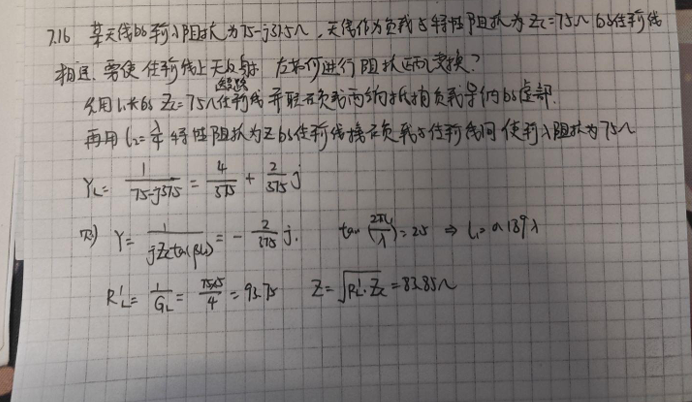 7.16 某天线的输入阻抗为75-j37.5Ω,天线作为负载与特性阻抗为Zc=75Ω的传输线
相连.要使传输线上无反射,应如何进行阻抗匹配变换?
先用l₁长的Zc=75Ω传输线并联在负载两端抵消负载导纳的虚部.
短路
再用l₂=λ/4特性阻抗为Z的传输线接在负载与传输线间使输入阻抗为75Ω
Y_L= 1/(75-j37.5) = 4/375 + 2/375 j
则 Y= 1/(jZc tan(βl₁)) = - 2/375 j. tan(2πl₁/λ)=2.5 ⇒ l₁=0.189λ
R'_L= 1/G_L = 375/4 = 93.75 Z=√(R'_L·Zc) =83.85Ω